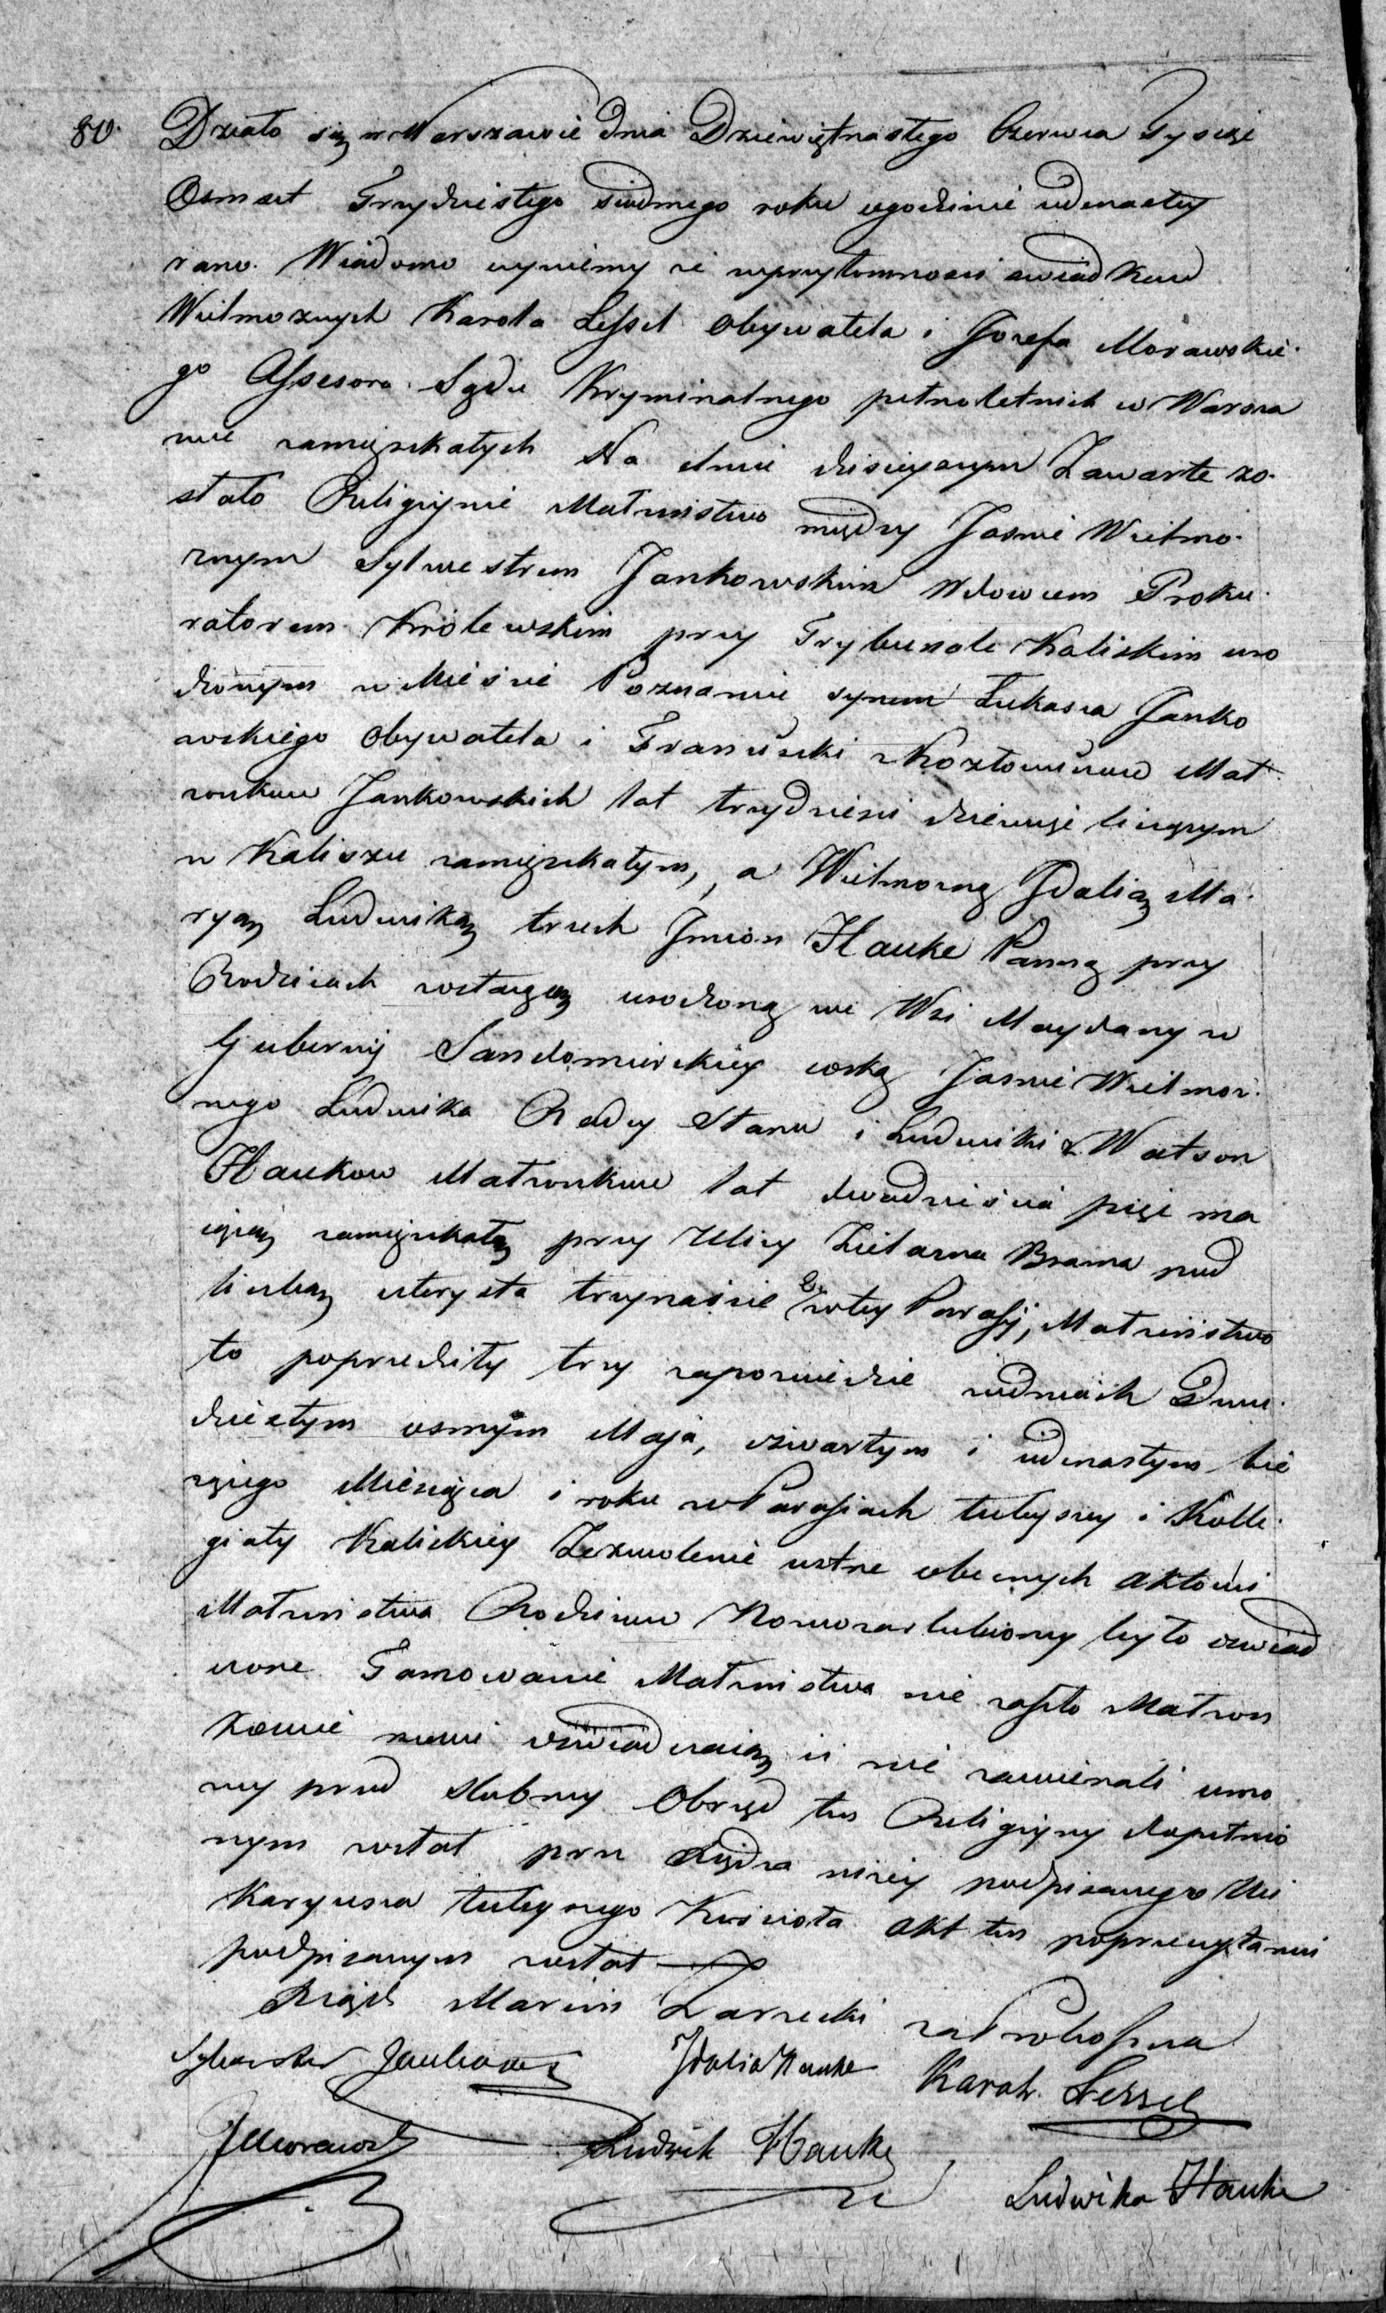 80. Działo się w Warszawie dnia Dziewiętnastego Czerwca Tysiąc
Osmset Trzydziestego siódmego roku o godzinie jedenastey
rano. Wiadomo czyniemy że w przytomności swiadkow
Wielmożnych Karola Lessel Obywatela i Jozefa Morawskie-
go Assesora Sądu Kryminalnego pełnoletnich w Warsza
wie zamięszkałych Na dniu dzisieyszym Zawarte zo-
stało Religijnie Małżeństwo między Jasnie Wielmo-
żnym Sylwestrem Jankowskim Wdowcem Proku-
ratorem Królewskim przy Trybunale Kaliskim uro
dzonym w Mieście Poznaniu synem Łukasza Janko
wskiego Obywatela i Franciszki z Kozłowiczow Mał
żonkow Jankowskich lat trzydzieści dziewięć liczącym
w Kaliszu zamięszkałym, a Wielmożną Idalią Ma-
ryą Ludwiką trzech Imion Hauke Panną przy
Rodzicach zostaiącą urodzoną we Wsi Maydany w
Gubernij Sandomirskiey corką Jasnie Wielmoż-
nego Ludwika Radzcy Stanu i Ludwiki z Watson
Haukow Małżonkow lat dwadzieścia pięć ma
iącą zamięszkałą przy Ulicy Żelazna Brama pod
liczbą czterysta trzynaście w tey Parafij, Małżeństwo
to poprzedziły trzy zapowiedzie w dniach Dwu-
dziestym osmym Maja, czwartym i jedenastym bie
żącego Miesiąca i roku w Parafiach tuteyszey i Kolle-
giaty Kaliskiey Zezwolenie ustne obecnych aktowi
Małżeństwa Rodzicow Nowozaslubioney było oswiad
czone. Tamowanie Małżeństwa nie zaszło Małżon
kowie nowi oswiadczaią iż nie zawierali umo
wy przed slubney Obrzęd ten Religijny dopełnio
nym został przez Xiędza niżey podpisanego Wi
karyusza tuteyszego Kościoła akt ten po przeczytaniu
podpisanym został
Xiądz Marcin Zarzecki za Proboszcza
Sylwester Jankowski Idalia Hauke Karol Lessel
J Morawski Ludwik Hauke
Ludwika Hauke